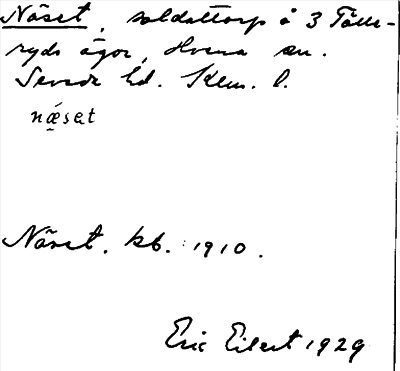 Näset, soldattorp å 3 Tålle-
ryds ägor, Hvena sn.
Sevede hd. Klm. l.
nǽset
Näset. kb. 1910.
Eric Eilert 1929